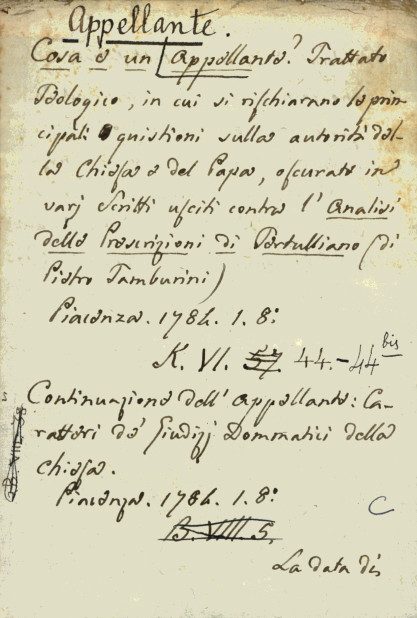 Appellante.
Cosa è un Appellante? Trattato
Teologico, in cui si rischiarano le prin-
cipali quistioni sulla autorità del-
la Chiesa e del Papa, oscurate in
varj scritti usciti contra l'Analisi
delle Prescrizioni di Tertulliano (di
Pietro Tamburini)
Piacenza. 1784. 1. 8:
K. VI. 57 44.-44 bis
Continuazione dell'Appellante: Ca-
ratteri de' Giudizj Dommatici della
Chiesa.
Piacenza. 1784. 1. 8:
B. VIII. 5.
C
La data dis